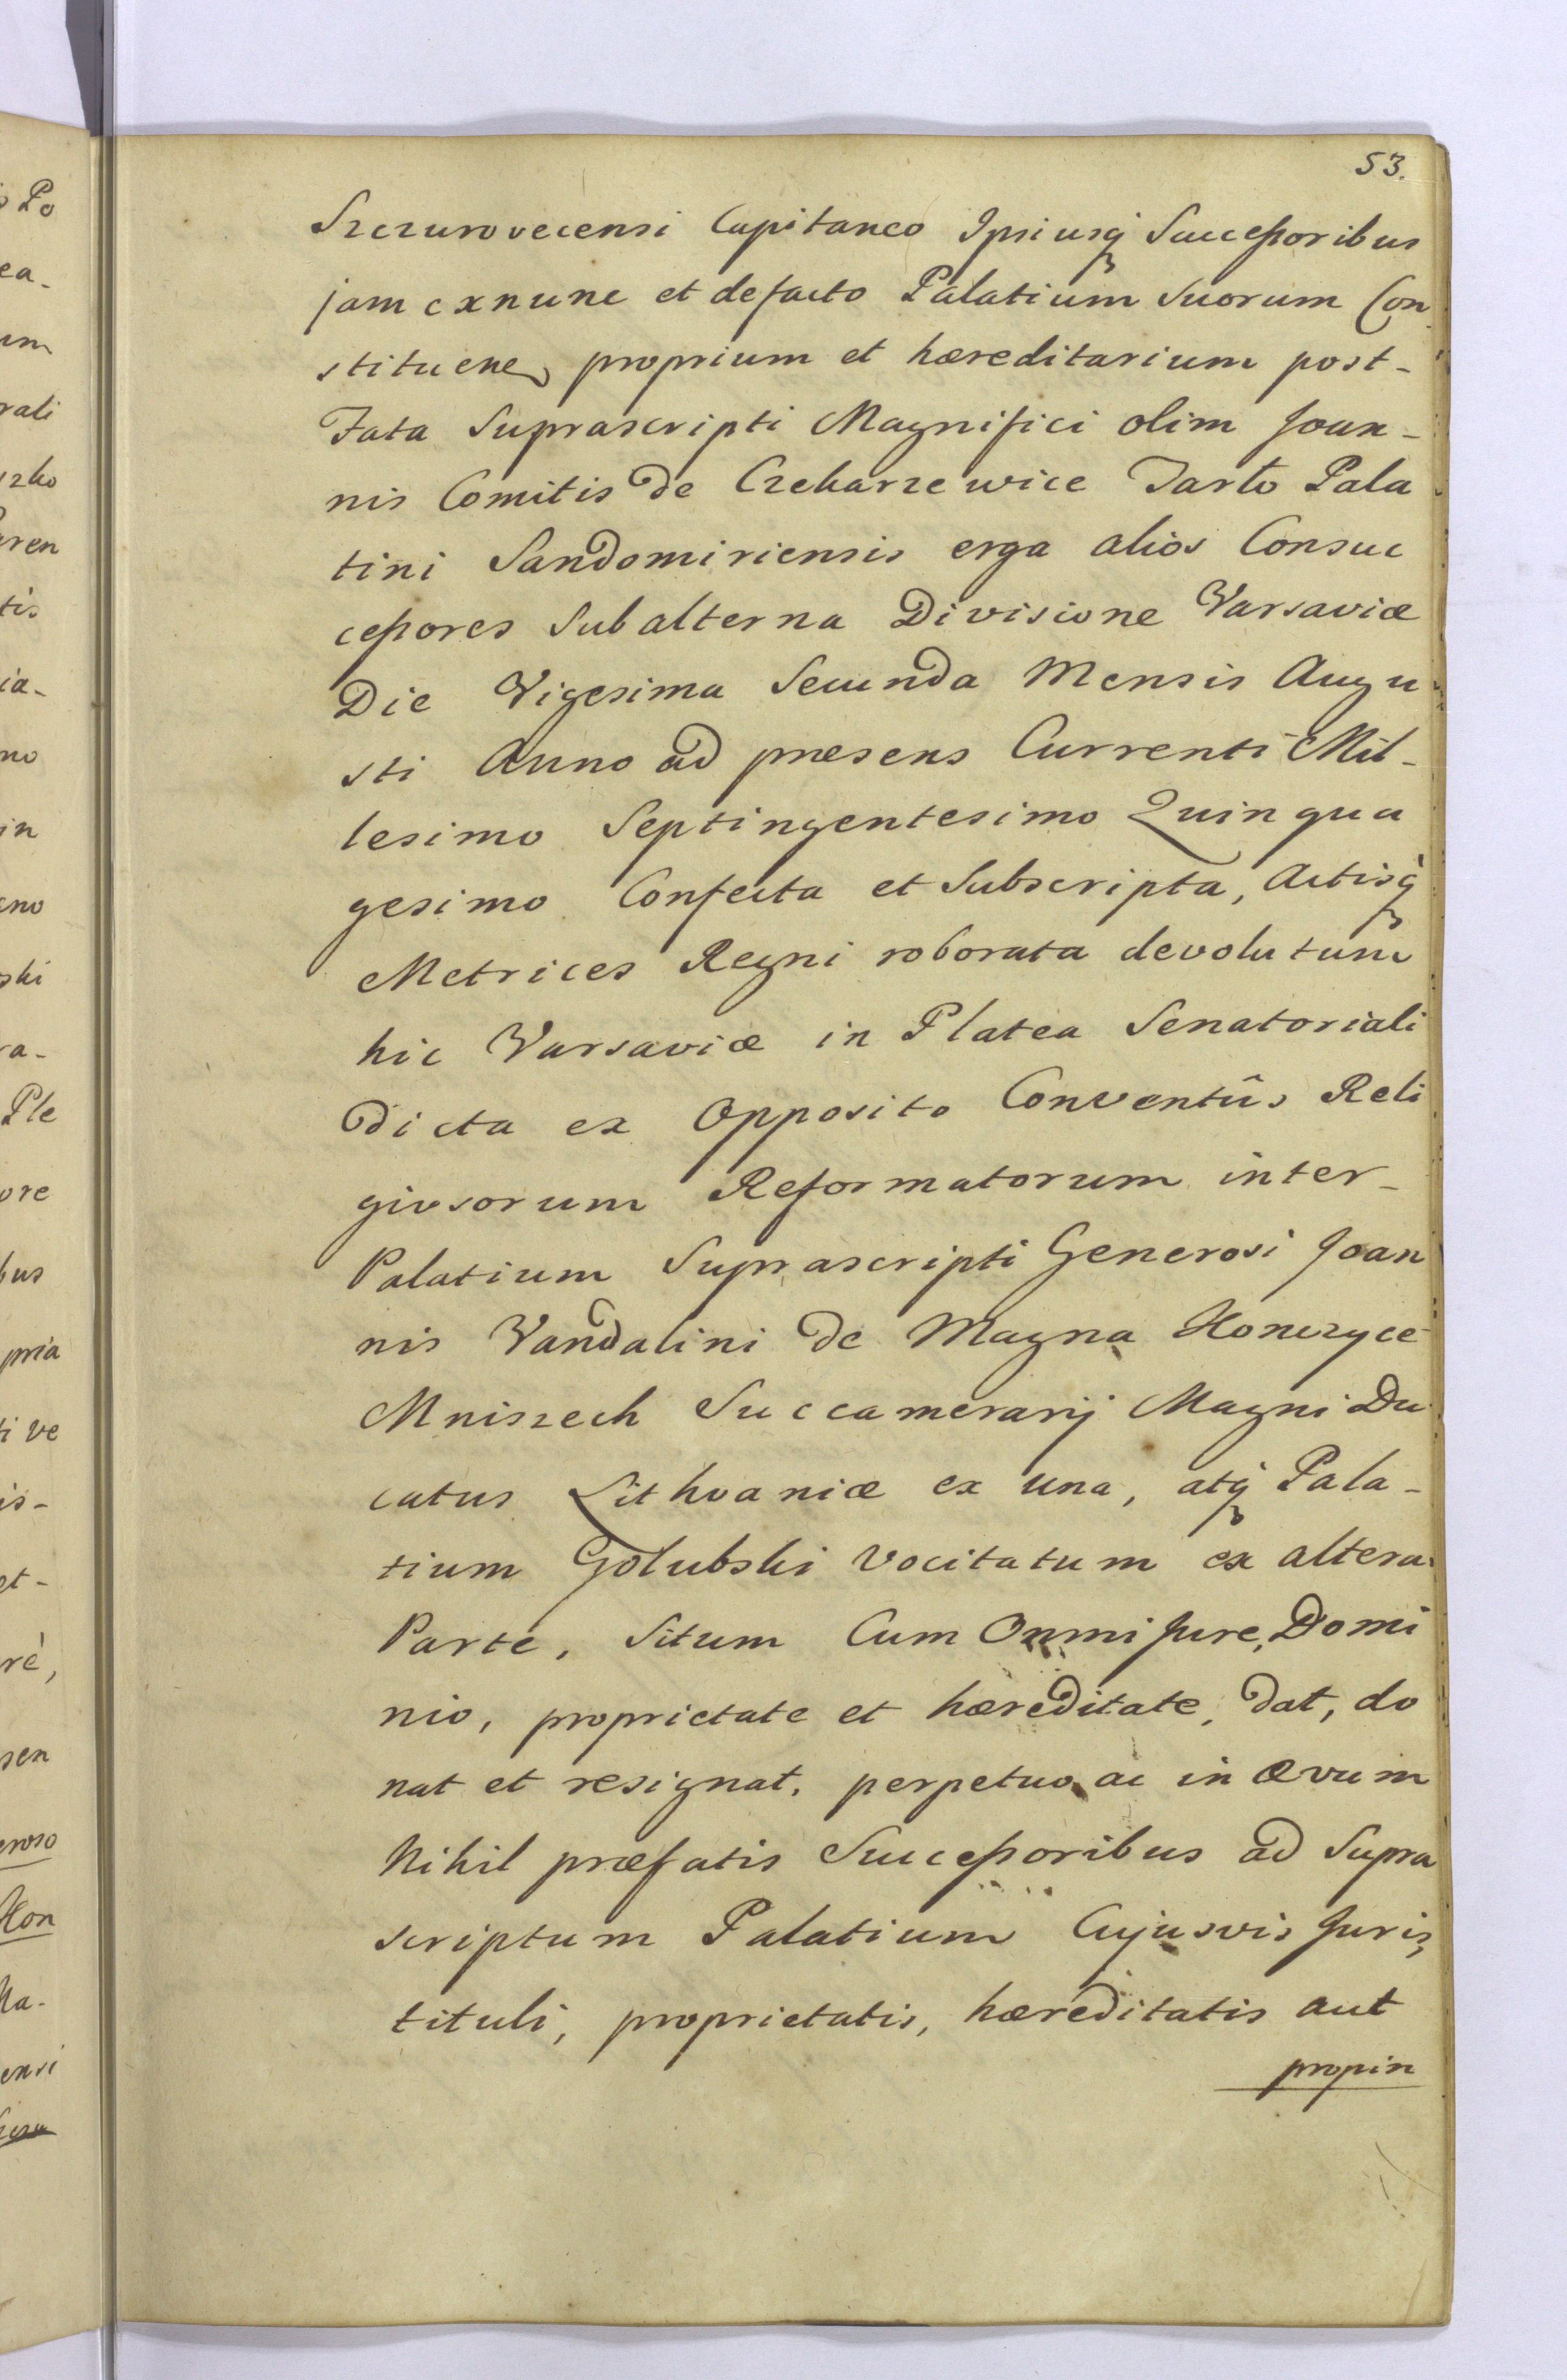 53.
Szczurovecensi Capitaneo Ipsiusq̃ Successoribus
jam exnunc et defacto Palatium Suorum Con
stituen proprium et hæreditarium post-
Fata Suprascripti Magnifici olim Joan-
nis Comitis de Czekarzewice Tarło Pala
tini Sandomiriensis erga alios Consuc
cessores Subalterna Divisione Varsaviæ
Die Vigesima Secunda Mensis Augu
sti Anno ad præsens Currenti Mil-
lesimo Septingentesimo Quinqua
gesimo Confecta et Subscripta, Actisq̃
Metrices Regni roborata devolutum
hic Varsaviæ in Platea Senatoriali
Dicta ex Opposito Conventûs Reli
giosorum Reformatorum inter-
Palatium Suprascripti Generosi Joan
nis Vandalini de Magna Konczyce
Mniszech Succamerarij Magni Du
catus Lithvaniæ ex una, atq̃ Pala-
tium Golubski vocitatum ex altera
Parte, Situm Cum Onmi Jure, Domi
nio, proprietate et hæreditate, dat, do
nat et resignat, perpetuo ac in Ævum
Nihil præfatis Successoribus ad Supra
scriptum Palatium Cujusvis Juris,
tituli, proprietatis, hæreditatis aut
propin
Po
ea-
um
rali
szko
aren
tis
ia-
no
in
eno
ski
ra-
Ple
ore
bus
pria
ti ve
is-
et-
rè,
sen
eroso
Kon
Ma-
ensi